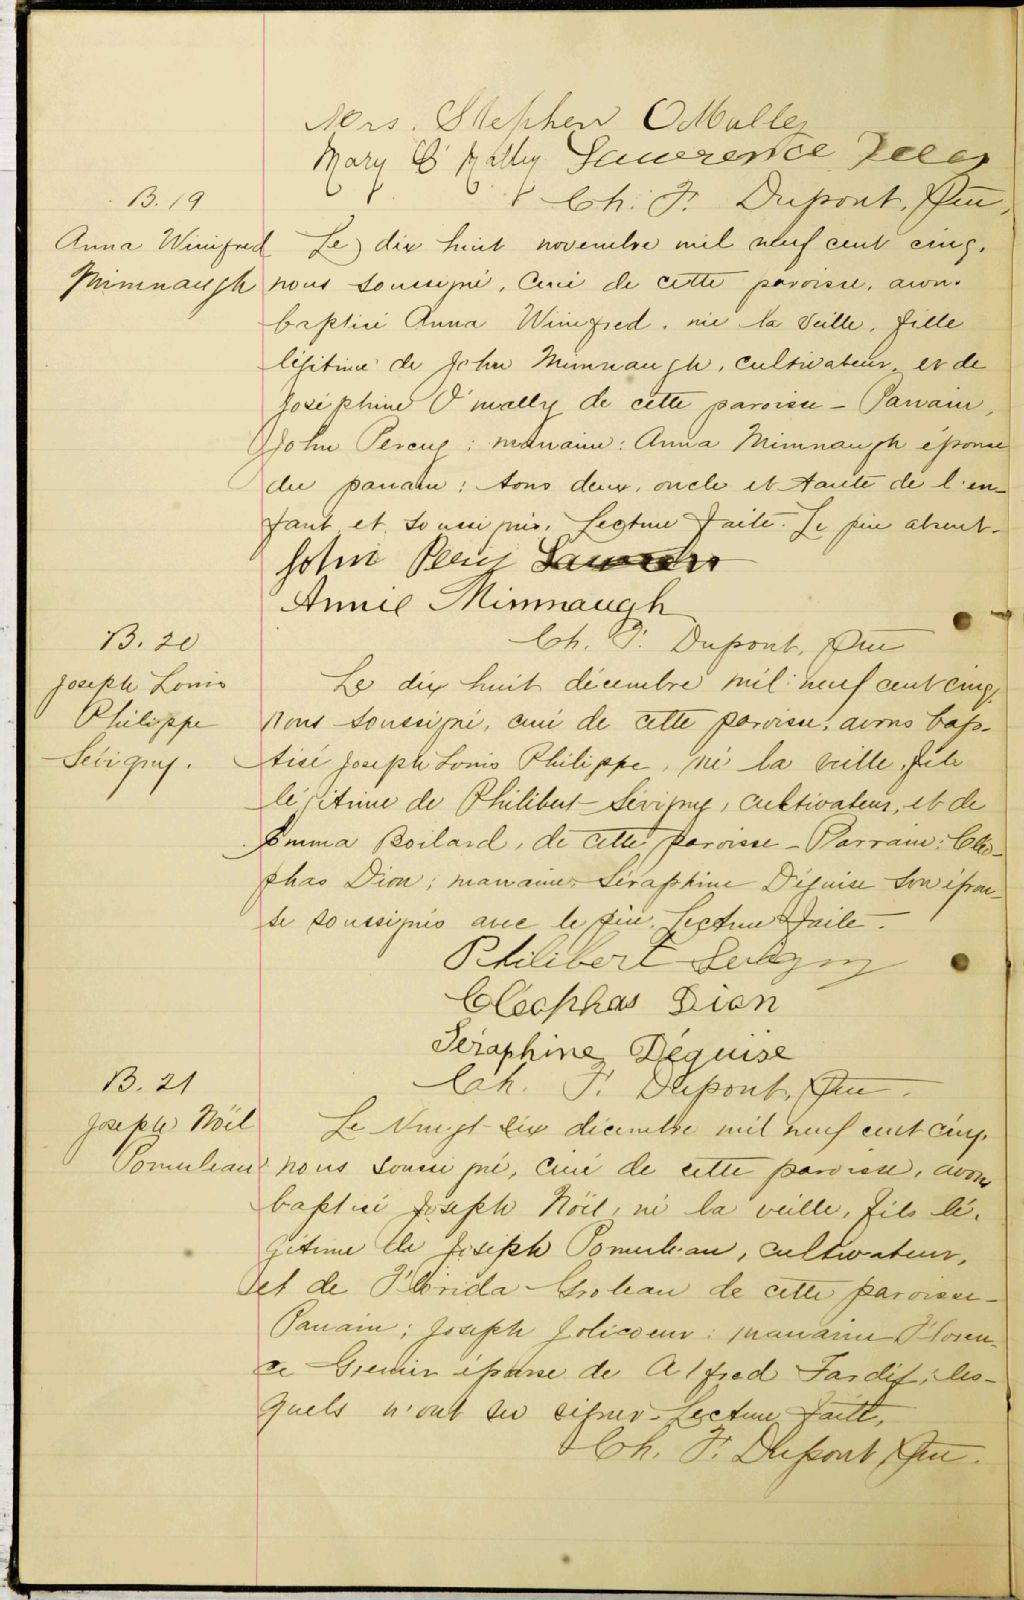 Mrs. Stephen OMalley
Mary O'Malley Lawrence
Ch. F. Dupont, Ptre
B. 19
Anna Winifred
Mimnaugh
Le dix huit novembre mil neuf cent cinq,
nous soussigné, curé de cette paroisse, avons
baptisé Anna Winifred, née la veille, fille
légitime de John Mimnaugh, cultivateur, et de
Joséphine O'malley de cette paroisse - Parrain,
John Percey; marraine: Anna Mimnaugh épouse
du parrain; tous deux, oncle et tante de l'en-
fant et soussignés. Lecture faite. Le père absent.
John Percy
Annie Mimnaugh
Ch. F. Dupont, Ptre
B. 20
Joseph Louis
Philippe
Sévigny.
Le dix huit décembre mil neuf cent cinq,
nous soussigné, curé de cette paroisse, avons bap-
tisé Joseph Louis Philippe, né la veille, fils
légitime de Philibert Sévigny, cultivateur, et de
Emma Boilard, de cette paroisse - Parrain: Cléo-
phas Dion; marraine Séraphine Déguise son épou-
se soussignés avec le père. Lecture faite.
Philibert Sevigny
Cléophas Dion
Séraphine Déguise
Ch. F. Dupont, Ptre.
B. 21
Joseph Noël
Pomerleau
Le vingt-six décembre mil neuf cent cinq,
nous soussigné, curé de cette paroisse, avons
baptisé Joseph Noël, né la veille, fils lé-
gitime de Joseph Pomerleau, cultivateur,
et de Florida Groleau de cette paroisse -
Parrain; Joseph Jolicoeur: marraine Floren-
ce Grenier épouse de Alfred Tardif, les-
quels n'ont su signer. Lecture faite,
Ch. F. Dupont Ptre.